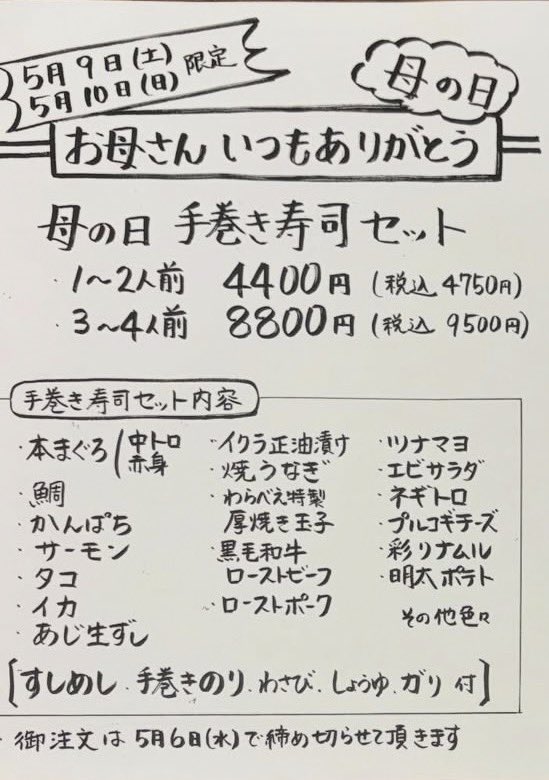 5月9日(土)
5月10日(日)
限定
母の日
お母さん いつもありがとう
母の日 手巻き寿司セット
・1〜2人前 4400円 (税込 4750円)
・3〜4人前 8800円 (税込 9500円)
手巻き寿司セット内容
・本まぐろ(中トロ
赤身
・鯛
・かんぱち
・サーモン
・タコ
・イカ
・あじ生ずし
・イクラ正油漬け
・焼うなぎ
・わらべえ特製
厚焼き玉子
・黒毛和牛
ローストビーフ
・ローストポーク
・ツナマヨ
・エビサラダ
・ネギトロ
・プルコギチーズ
・彩りナムル
・明太ポテト
その他色々
[すしめし、手巻きのり、わさび、しょうゆ、ガリ 付]
・御注文は 5月6日(水)で締め切らせて頂きます